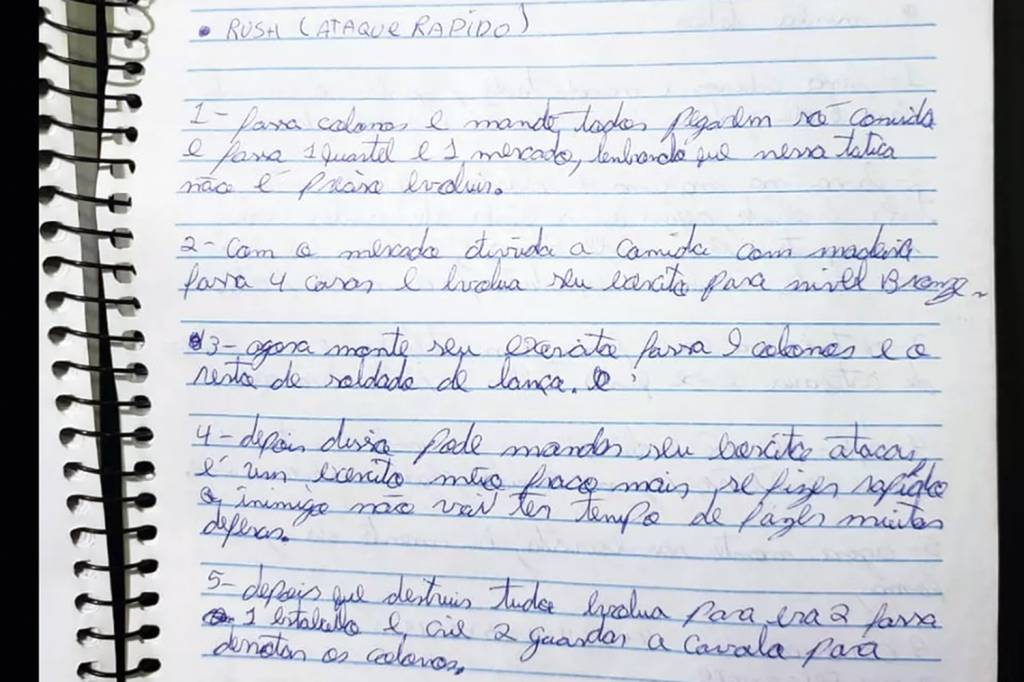 • RUSH (ATAQUE RAPIDO)
1- fassa colonos e mande todos pegarem só comida
e fassa 1 quartel e 1 mercado, lembrando que nessa tatica
não é preciso evoluir.
2- Com o mercado divida a comida com madeira
fassa 4 casas e evolua seu exercito para nivel Bronze.
3- agora monte seu exercito fassa 9 colonos e o
resto de soldado de lança.
4- depois disso pode mandar seu exercito atacar,
é um exercito meio fraco mais se fizer rapido
o inimigo não vai ter tempo de fazer muitas
defesas.
5- depois que destruir tudo evolua para era 2 fassa
1 estabullo e crie 2 guardas a cavalo para
derrotar os colonos.